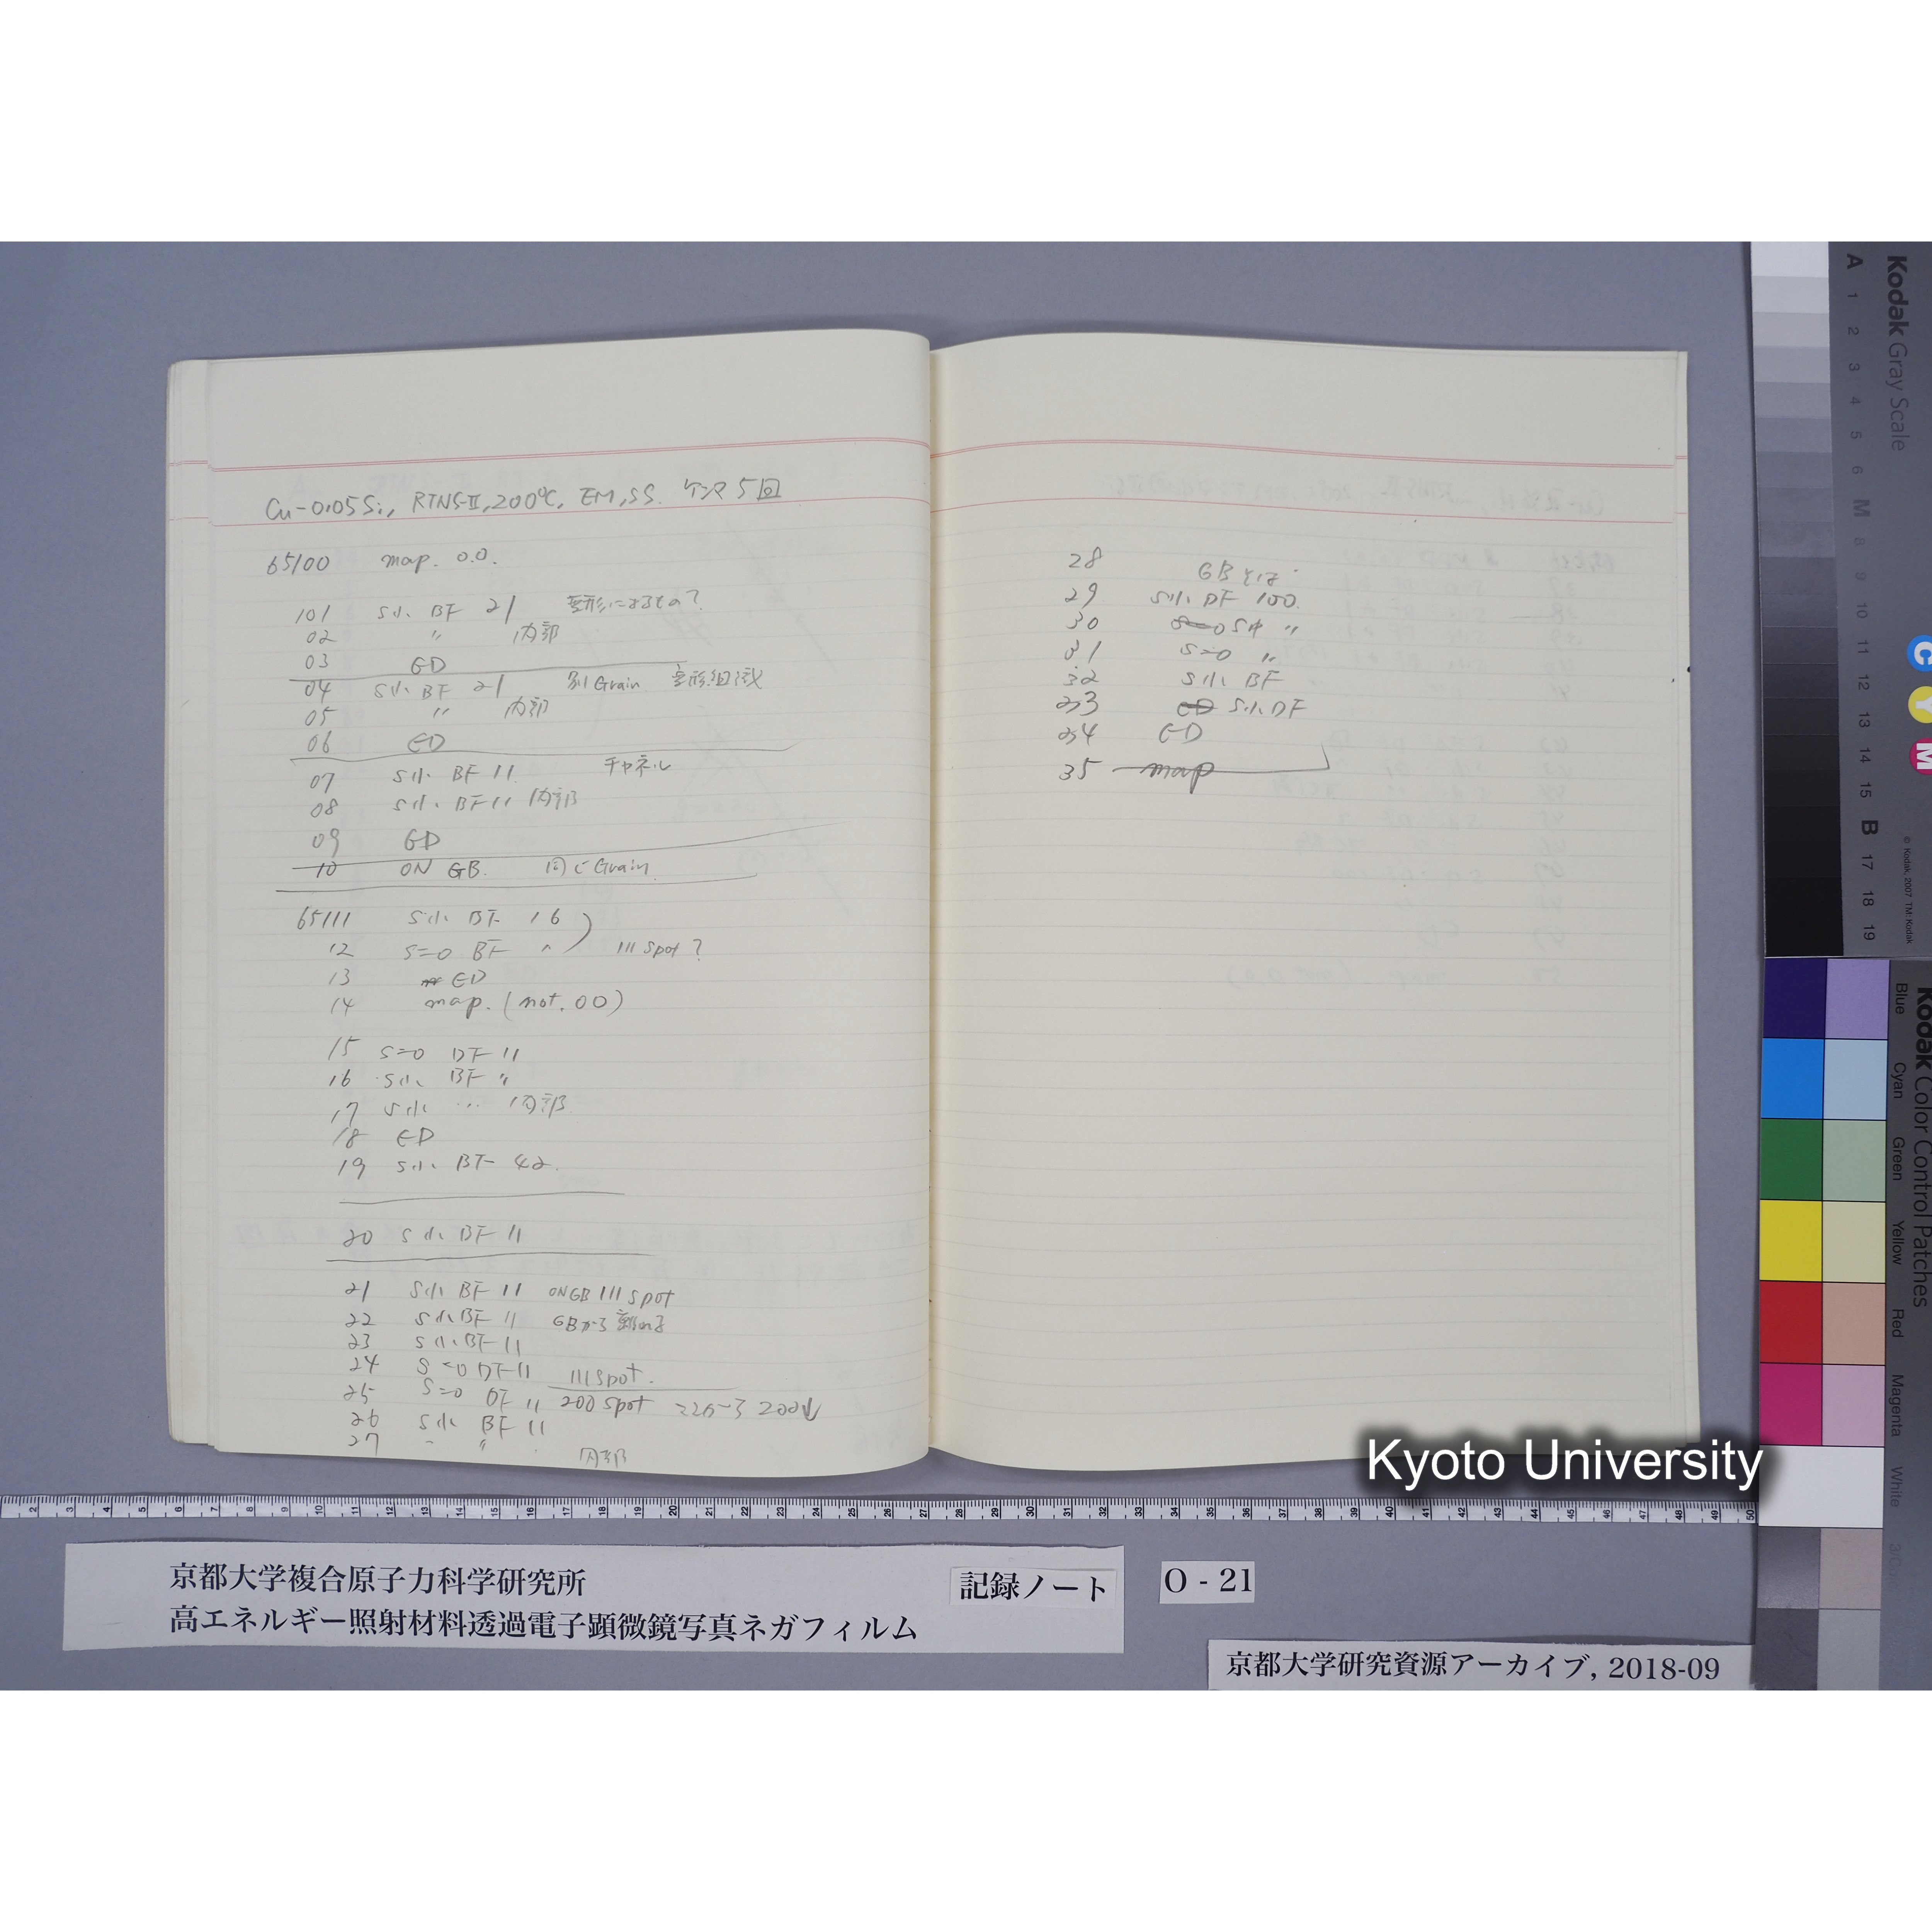 Cu-0.05Si, RTNS-II, 200℃, EM, SS. ケンマ5回
65100 map. 0.0.
101 S小 BF 21 変形によるもの?
02 〃 内部
03 ED
04 S小 BF 21 別Grain 変形組織
05 〃 内部
06 ED
07 S小 BF 11. チャネル
08 S小 BF 11 内部
09 ED
10 ON GB. 同じGrain
65111 S小 BF 16
12 S=0 BF 〃 111 spot?
13 ED
14 map. (not. 00)
15 S=0 DF 11
16 S小 BF 〃
17 S小 〃 内部
18 ED
19 S小 BF 42.
20 S小 BF 11
21 S小 BF 11 ON GB 111 spot
22 S小 BF 11 GBから離れる
23 S小 BF 11
24 S=0 DF 11 111 spot.
25 S=0 DF 11 200 spot ここから 200↓
26 S小 BF 11
27 〃 〃 内部
28 GB
29 S小 DF 100.
30 S中 〃
31 S=0 〃
32 S小 BF
33 S小 DF
34 ED
35 map
Kyoto University
京都大学複合原子力科学研究所
高エネルギー照射材料透過電子顕微鏡写真ネガフィルム
記録ノート
O - 21
京都大学研究資源アーカイブ, 2018-09
Kodak Gray Scale
A 1 2 3 4 5 6 M 8 9 10 11 12 13 14 15 B 17 18 19
C
Y
M
© Kodak, 2007 TM: Kodak
Kodak Color Control Patches
Blue Cyan Green Yellow Red Magenta White
2 3 4 5 6 7 8 9 10 11 12 13 14 15 16 17 18 19 20 21 22 23 24 25 26 27 28 29 30 31 32 33 34 35 36 37 38 39 40 41 42 43 44 45 46 47 48 49 50